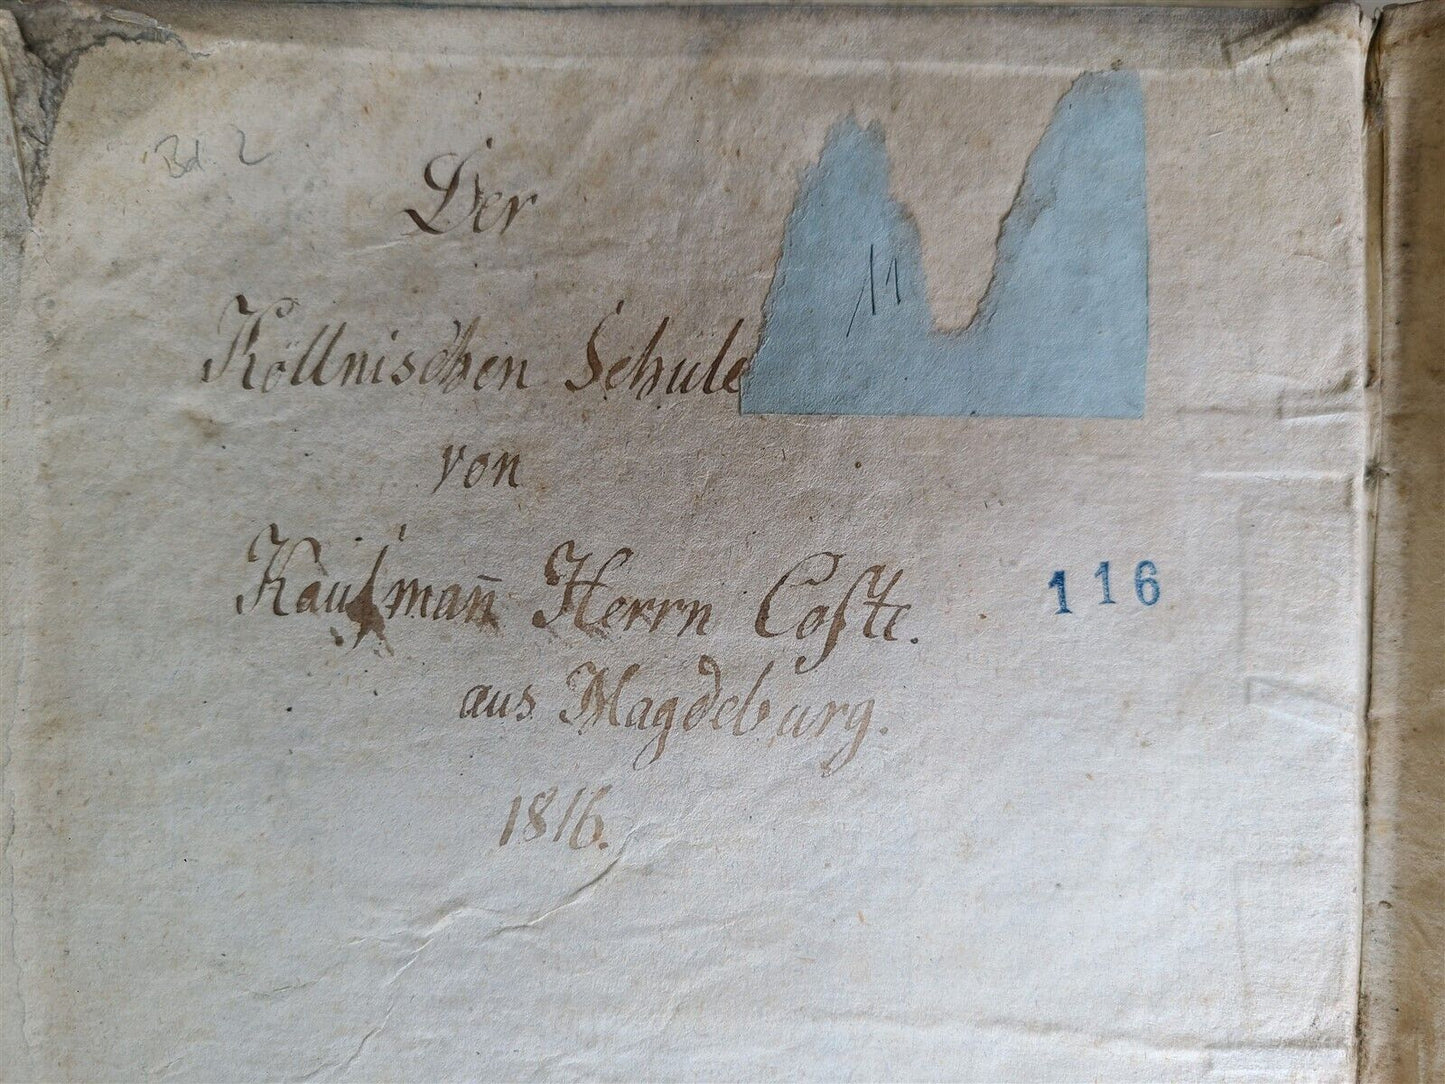 Bd. 2
Der
11
Köllnischen Schule
von
Kaufman̅ Herrn Coſte.
116
aus Magdeburg.
1816.